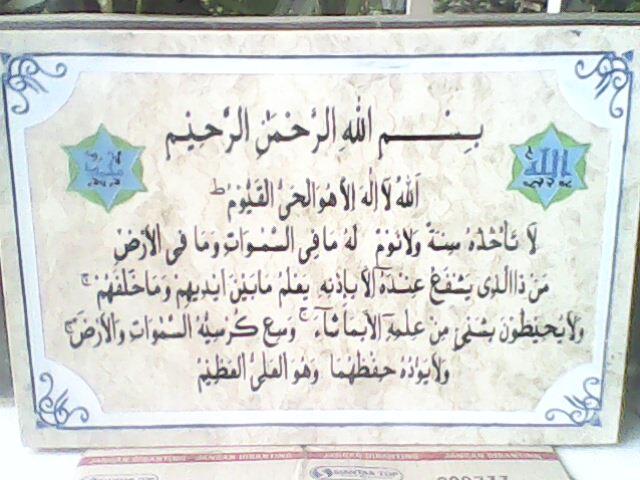 بِسْمِ اللهِ الرَّحْمٰنِ الرَّحِيْمِ
الله
اَللهُ لَا اِلٰهَ اِلَّا هُوَ الْحَيُّ الْقَيُّوْمُ ۚ ط
لَا تَأْخُذُهُ سِنَةٌ وَلَا نَوْمٌ لَهُ مَا فِى السَّمٰوَاتِ وَمَا فِى الْاَرْضِ
مَنْ ذَا الَّذِى يَشْفَعُ عِنْدَهُ اِلَّا بِاِذْنِهِ يَعْلَمُ مَا بَيْنَ اَيْدِيْهِمْ وَمَا خَلْفَهُمْ ۚ
وَلَا يُحِيْطُوْنَ بِشَىْءٍ مِنْ عِلْمِهِ اِلَّا بِمَا شَاءَ ۚ وَسِعَ كُرْسِيُّهُ السَّمٰوَاتِ وَالْاَرْضَ ۚ
وَلَا يَؤُدُهُ حِفْظُهُمَا وَهُوَ الْعَلِىُّ الْعَظِيْمُ
JANGAN DIBANTING JANGAN DIBANTING
GIANTAR TOP